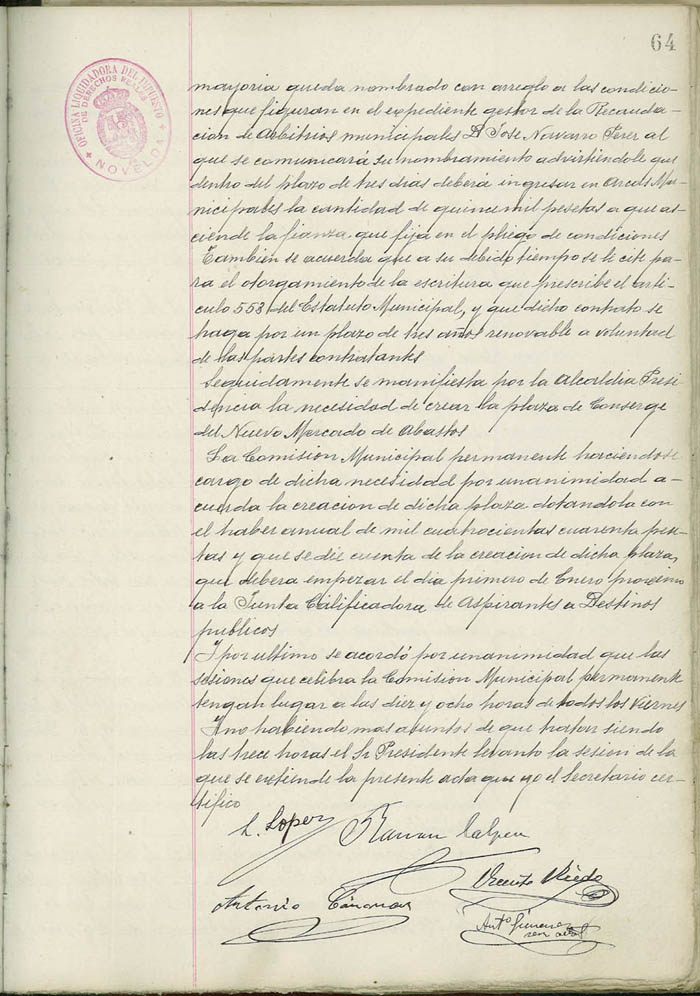 64
OFICINA LIQUIDADORA DEL IMPUESTO
DE DERECHOS REALES
NOVELDA
mayoria queda nombrado con arreglo a las condicio-
nes que figuran en el expediente gestor de la Recauda-
cion de Arbitrios municipales D Jose Navarro Perez al
que se comunicará su nombramiento advirtiendole que
dentro del plazo de tres dias deberá ingresar en Arcas Mu-
nicipales la cantidad de quince mil pesetas a que as-
ciende la fianza que fija en el pliego de condiciones
Tambien se acuerda que a su debido tiempo se le cite pa-
ra el otorgamiento de la escritura que prescribe el arti-
culo 553 del Estatuto Municipal, y que dicho contrato se
haga por un plazo de tres años renovable a voluntad
de las partes contratantes
Seguidamente se manifiesta por la Alcaldia Presi-
dencia la necesidad de crear la plaza de Conserge
del Nuevo Mercado de Abastos
La Comision Municipal permanente haciendose
cargo de dicha necesidad por unanimidad a-
cuerda la creacion de dicha plaza dotandola con
el haber anual de mil cuatrocientas cuarenta pese-
tas y que se dé cuenta de la creacion de dicha plaza,
que debera empezar el dia primero de Enero proximo
a la Junta Calificadora de Aspirantes a Destinos
publicos
I por ultimo se acordó por unanimidad que las
sesiones que celebra la Comision Municipal permanente
tengan lugar a las diez y ocho horas de todos los Viernes
I no habiendo mas asuntos de que tratar siendo
las trece horas el Sr Presidente levanto la sesion de la
que se extiende la presente acta que yo el Secretario cer-
tifico
L. Lopez Ramon
Vicente
Antonio
Antº